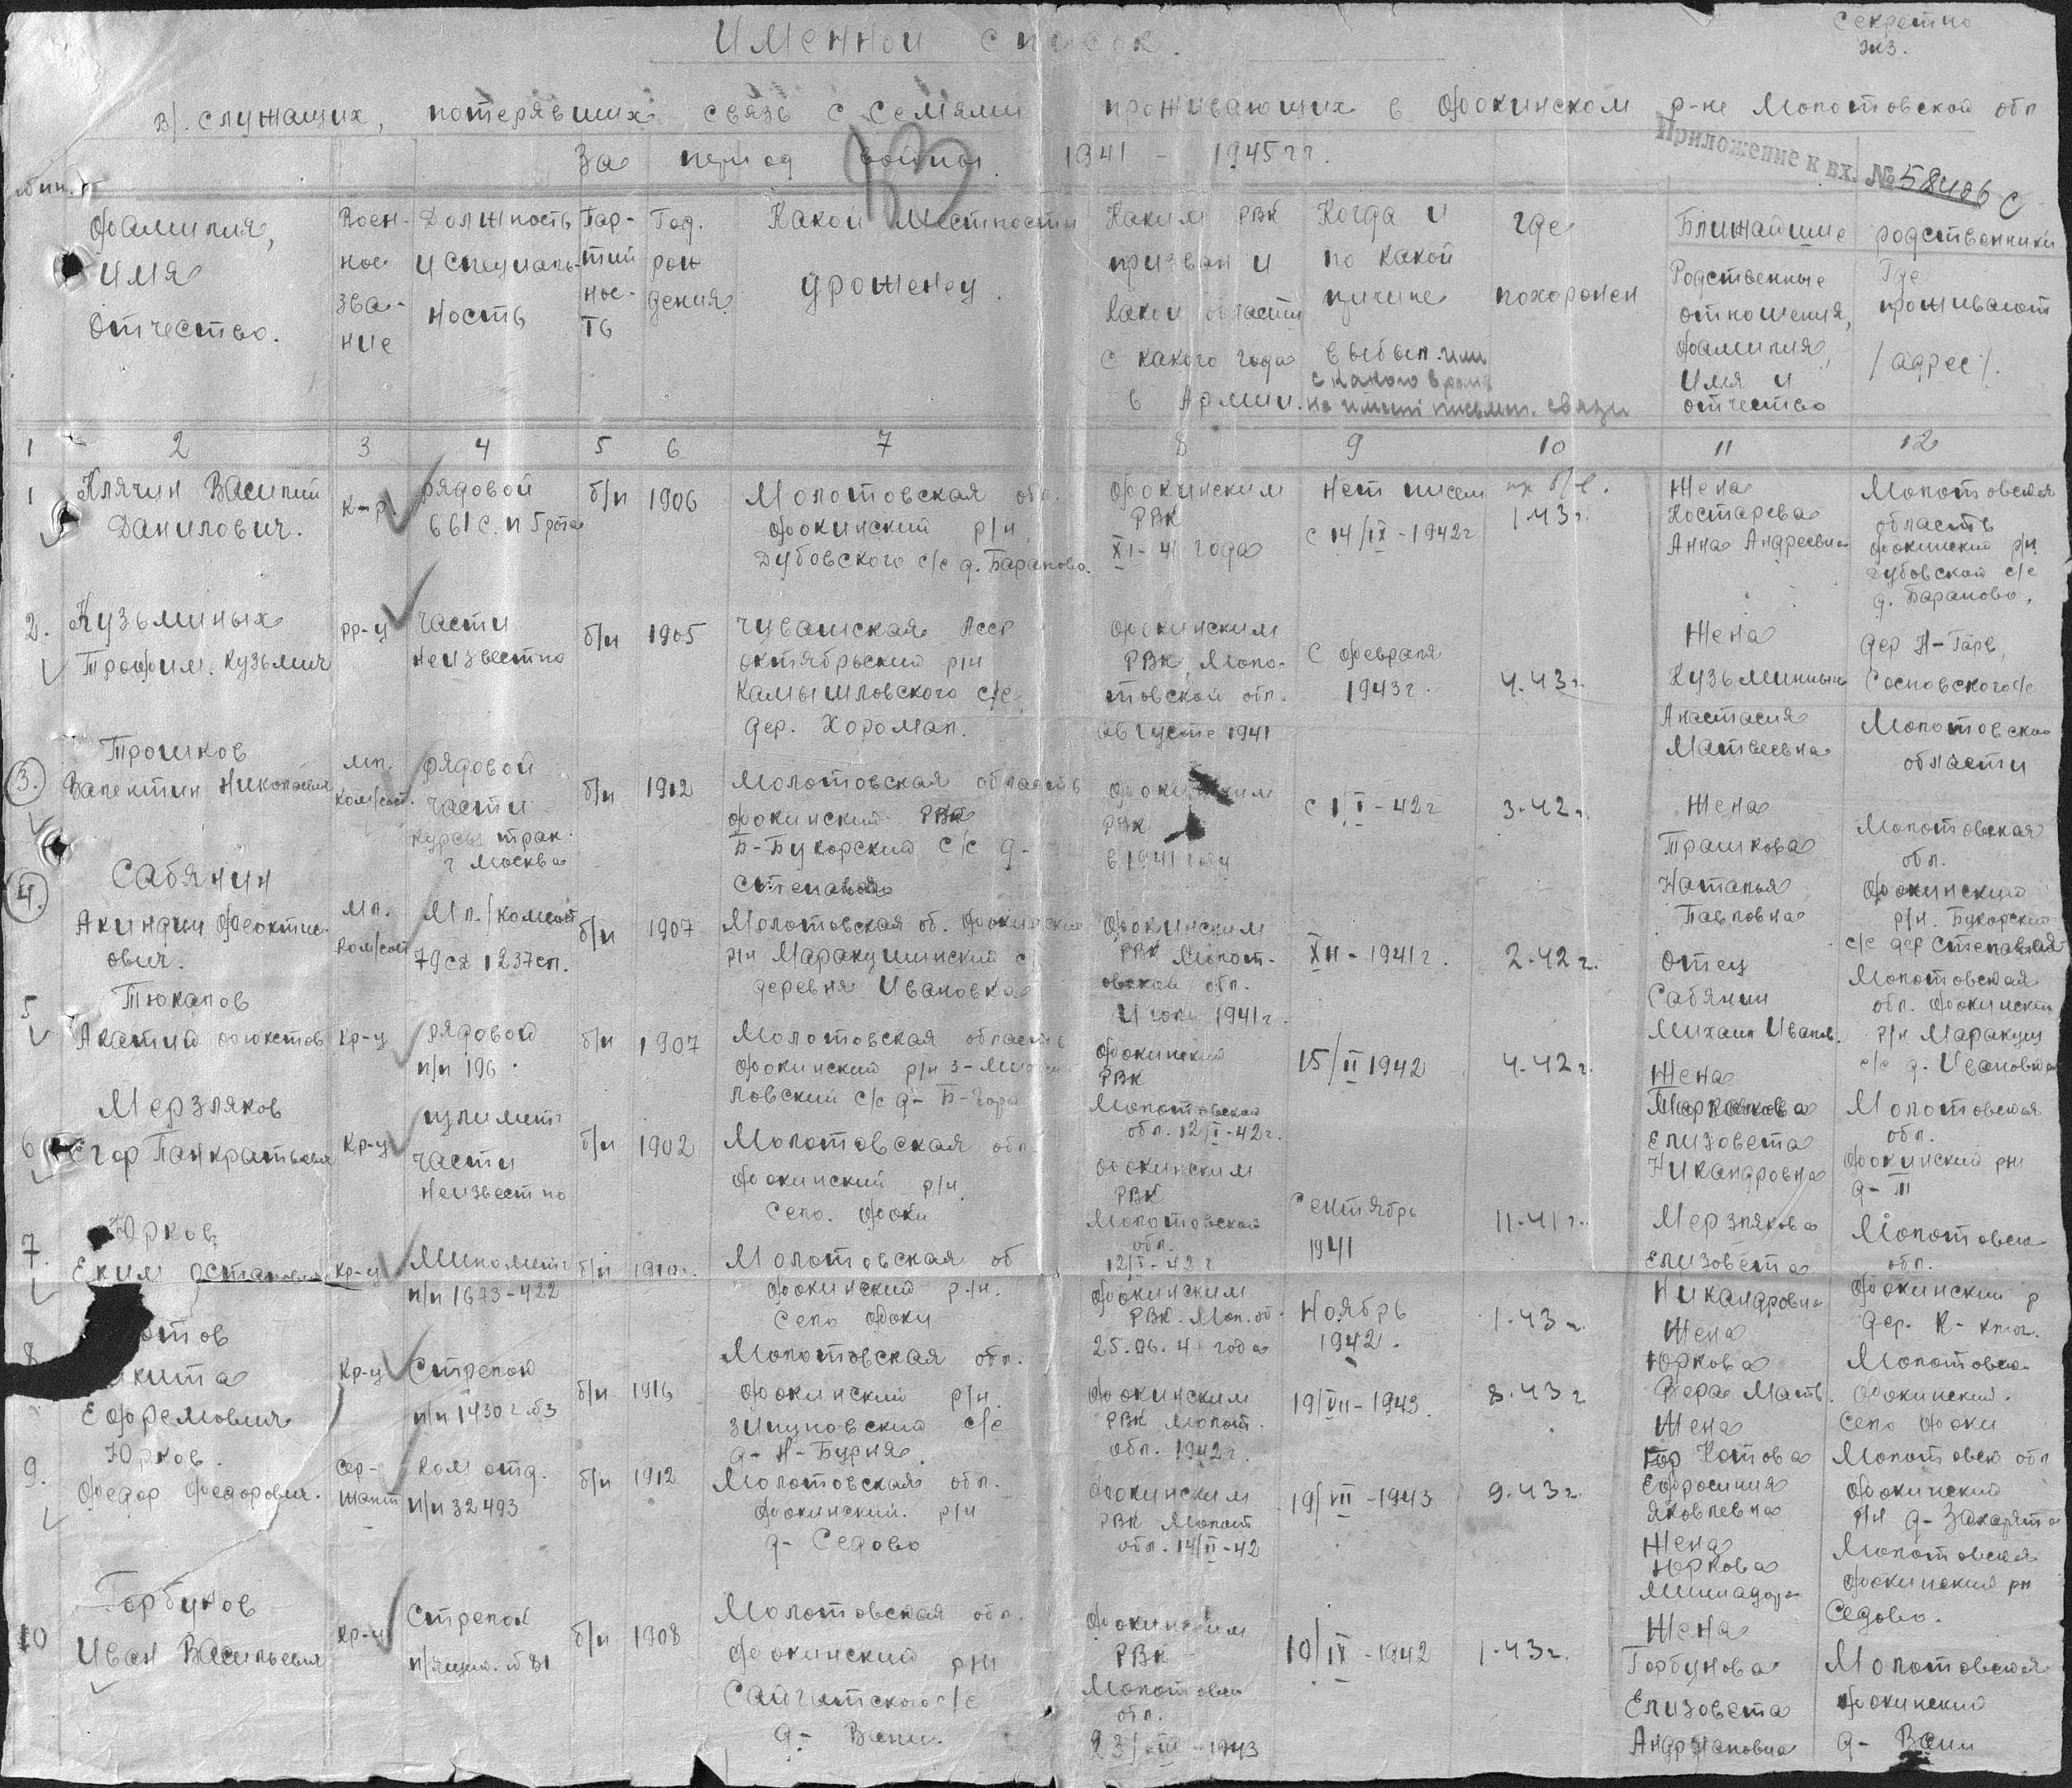 Секретно
экз.
Именной список.
в/служащих, потерявших связь с семьями проживающих в Фокинском р-не Молотовской обл
за период войны 1941 - 1945 гг.
Приложение к вх. №
№ пп.
Фамилия,
имя
отчество.
Воен-
ное
зва-
ние
Должность
и специаль-
ность
Пар-
тий
нос-
ть
Год.
рож
дения
Какой местности
уроженец.
Каким РВК
призван и
какой области
с какого года
в Армии.
Когда и
по какой
причине
выбыл или
с какого врем
не имеют письмен. связи
где
похоронен
Ближайшие родственники
Родственные
отношения,
фамилия,
имя и
отчество
Где
проживают
/адрес/.
1 2 3 4 5 6 7 8 9 10 11 12
1
Клячин Василий
Данилович.
к-р
рядовой
661 с.п 5 рота
б/п
1906
Молотовская обл.
Фокинский р/н
Дубовского с/с д. Бараново.
Фокинским
РВК
XI-41 года
Нет писем
с 14/IX-1942г
пр б/в.
1.43 г.
Жена
Костарева
Анна Андреевна
Молотовская
область
Фокинский р/н
Дубовской с/с
д. Бараново.
2.
Кузьминых
Трофим. Кузьмич
кр-ц
части
неизвестно
б/п
1905
Чувашская АССР
Октябрьский р/н
Камышловского с/с
дер. Хоромал.
Фокинским
РВК Моло-
товской обл.
августе 1941
с февраля
1943 г.
4.43 г.
Жена
Кузьминных
Анастасия
Матвеевна
дер Н-Гарь,
Сосновского с/с
Молотовской
области
3.
Трошков
Валентин Николаевич
мл.
ком/сост.
рядовой
части
курсы трак.
г Москва
б/п
1912
Молотовская область
Фокинский РВК
Б-Букорский с/с д-
Степаново
Фокинским
РВК
в 1941 году
с 1/I-42г
3.42 г.
Жена
Трашкова
Наталья
Павловна
Молотовская
обл.
Фокинский
р/н. Букорский
с/с дер Степаново
4.
Сабянин
Акиндин Феоктис-
ович.
мл.
ком/сост
Мл./комсост
79 сд 1237 сп.
б/п
1907
Молотовская об. Фокинский
р/н Маракушинский с
деревня Ивановка
Фокинским
РВК Молот-
овской обл.
Июль 1941г.
XII-1941г.
2.42 г.
отец
Сабянин
Михаил Иванв.
Молотовская
обл. Фокинский
р/н Маракуш
с/с д. Ивановка
5
Тюкалов
кр-ц
рядовой
п/п 196
б/п
1907
Молотовская область
Фокинский р/н З-Мих
ловский с/с д- Б-Гора
Фокинский
РВК
Молотовской
обл. 12/I-42г.
15/II 1942
4.42 г.
Жена
Елизовета
Никандровна
Молотовская
обл.
Фокинский рн
6
Мерзляков
Егор Панкратьевич
кр-ц
части
неизвестно
б/п
1902
Молотовская обл.
Фокинский р/н
село. Фоки
Фокинским
РВК
Молотовской
обл.
12/I-42 г
Сентябрь
1941
11.41 г.
Мерзлякова
Елизовета
Никандровна
Молотовско
обл.
Фокинский р
7.
Юрков
Еким Остапович
кр-ц
Миномет
п/п 1673-422
б/п
Молотовская об
Фокинский р/н.
село Фоки
Фокинским
РВК. Мол. об.
25.06.41 года
Ноябрь
1942.
1.43 г.
Жена
Юркова
Вера Матв.
Молотовско
Фокинский.
село Фоки
8
отов
икита
Ефремович
кр-ц
Стрелок
б/п
1916
Молотовская обл.
Фокинский р/н
Зипуновский с/с
д- Н-Бурня
Фокинским
РВК Молот.
обл. 1942г.
19/VII-1943.
8.43 г
Жена
Котова
Ефросиния
Яковлевна
Молотовск обл
Фокинский
р/н д- Захарята
9.
Юрков.
Федор Федорович.
сер-
жант
Ком отд.
п/п 32493
б/п
1912
Молотовская обл.
Фокинский. р/н
д- Седово
Фокинским
РВК Молот
обл. 14/II-42
19/VII-1943
9.43г.
Жена
Юркова
Миладора
Молотовская
Фокинский рн
Седово.
10
Горбунов
Иван Васильевич
кр-ц
Стрелок
б/п
1908
Молотовская обл.
Фокинский рн
Сайгатского с/с
д- Вани.
Фокинским
РВК
Молотовск
обл.
23/VIII-1943
10/IX-1942
1.43г.
Жена
Горбунова
Елизовета
Андриановна
Молотовская
Фокинский
д- Вани